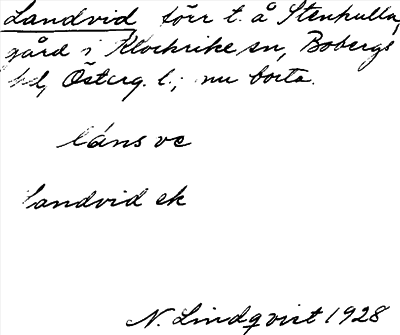 Landvid förr t. å Stenkulla,
gård i Klockrike sn, Bobergs
hd, Österg. l.; nu borta.
láns ve
landvid ek
N. Lindqvist 1928